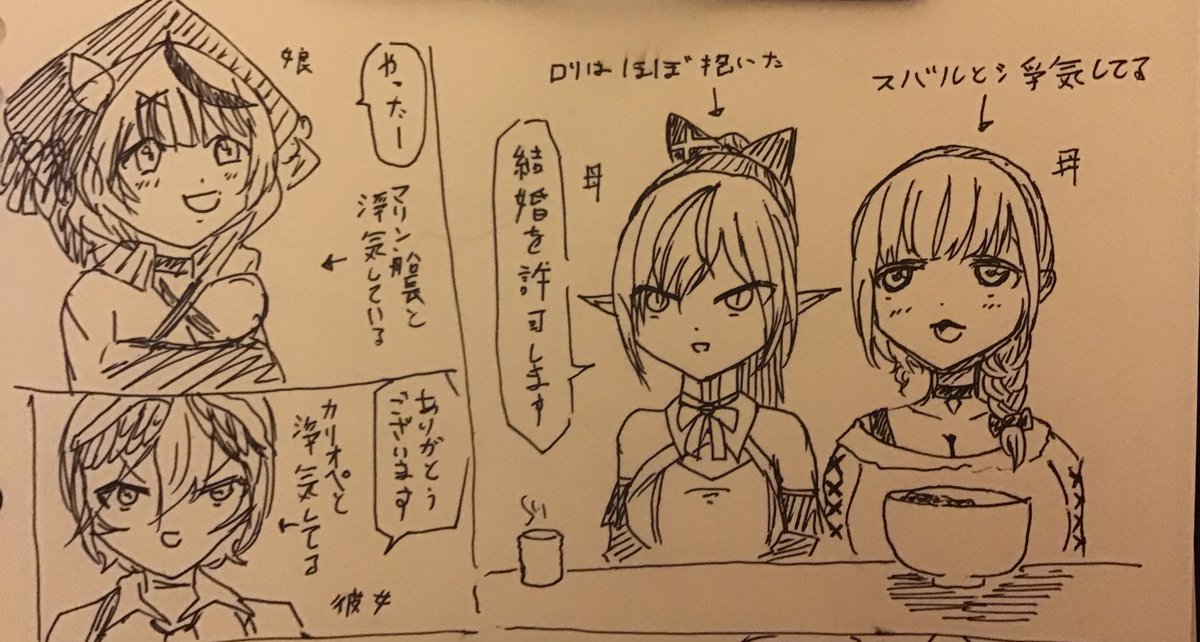 ロリはほぼ抱いた
スバルとシ浮気してる
母
母
結婚を許可します
娘
やったー
マリン船長と
浮気している
ありがとう
ございます
カリオペと
浮気してる
彼女